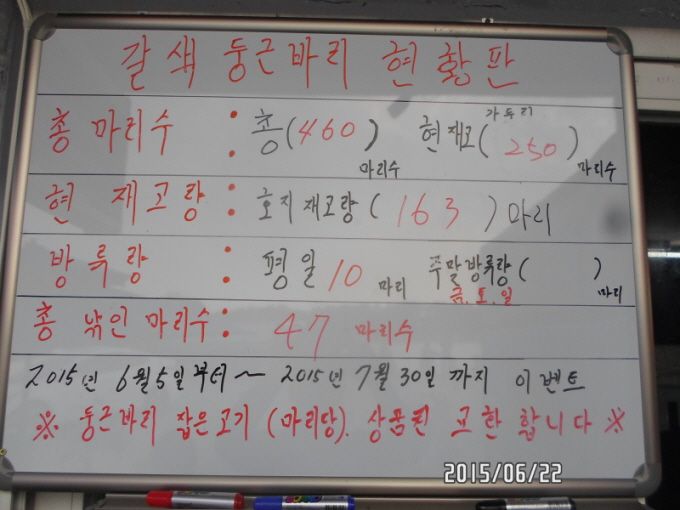 갈색 둥근바리 현황판
총 마리수 : 총(460)마리수 현재고(가두리 250)마리수
현 재고량 : 호지재고량(163)마리
방류량 : 평일 10 마리 주말방류량( )마리
금.토.일
총 낚인 마리수 : 47 마리수
2015년 6월5일부터 ~ 2015년 7월 30일 까지 이벤트
※ 둥근바리 잡은고기 (마리당). 상품권 교환 합니다 ※
2015/06/22